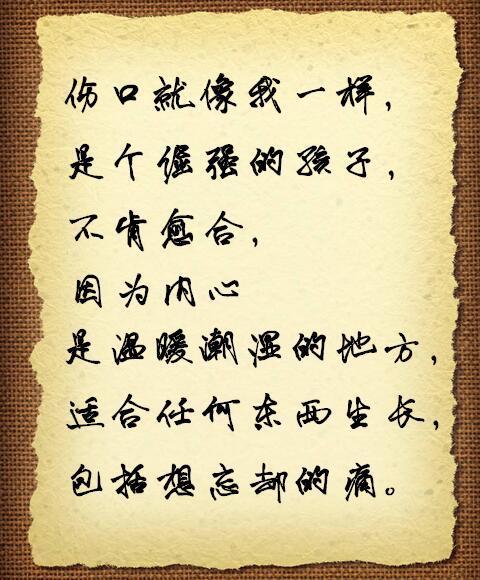 伤口就像我一样，
是个倔强的孩子，
不肯愈合，
因为内心
是温暖潮湿的地方，
适合任何东西生长，
包括想忘却的痛。